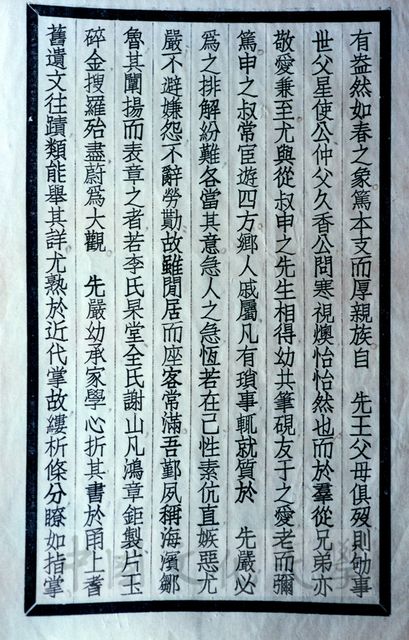 有盎然如春之象篤本支而厚親族自　先王父母俱歿則劬事
世父星使公仲父久香公問寒視燠怡怡然也而於羣從兄弟亦
敬愛兼至尤與從叔申之先生相得幼共筆硯友于之愛老而彌
篤申之叔常宦遊四方鄉人戚屬凡有瑣事輒就質於　先嚴必
爲之排解紛難各當其意急人之急恆若在己性素伉直嫉惡尤
嚴不避嫌怨不辭勞勩故雖閒居而座客常滿吾鄞夙稱海濱鄒
魯其闡揚而表章之者若李氏杲堂全氏謝山凡鴻章鉅製片玉
碎金搜羅殆盡蔚爲大觀　先嚴幼承家學心折其書於甬上耆
舊遺文往蹟類能舉其詳尤熟於近代掌故縷析條分瞭如指掌